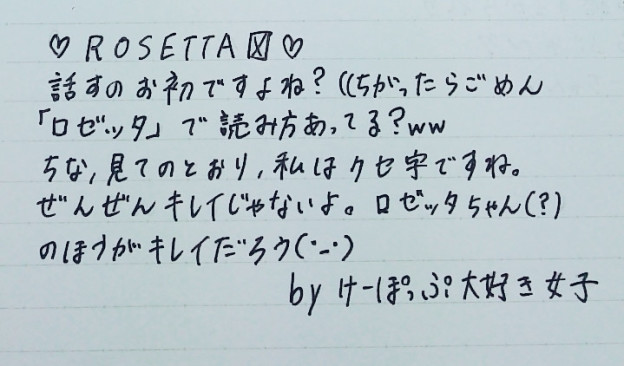 ♡ ROSETTA〼 ♡
話すのお初ですよね?((ちがったらごめん
「ロゼッタ」で読み方あってる?ww
ちな,見てのとおり,私はクセ字ですね。
ぜんぜんキレイじゃないよ。ロゼッタちゃん(?)
のほうがキレイだろう(・_・)
by けーぽっぷ大好き女子